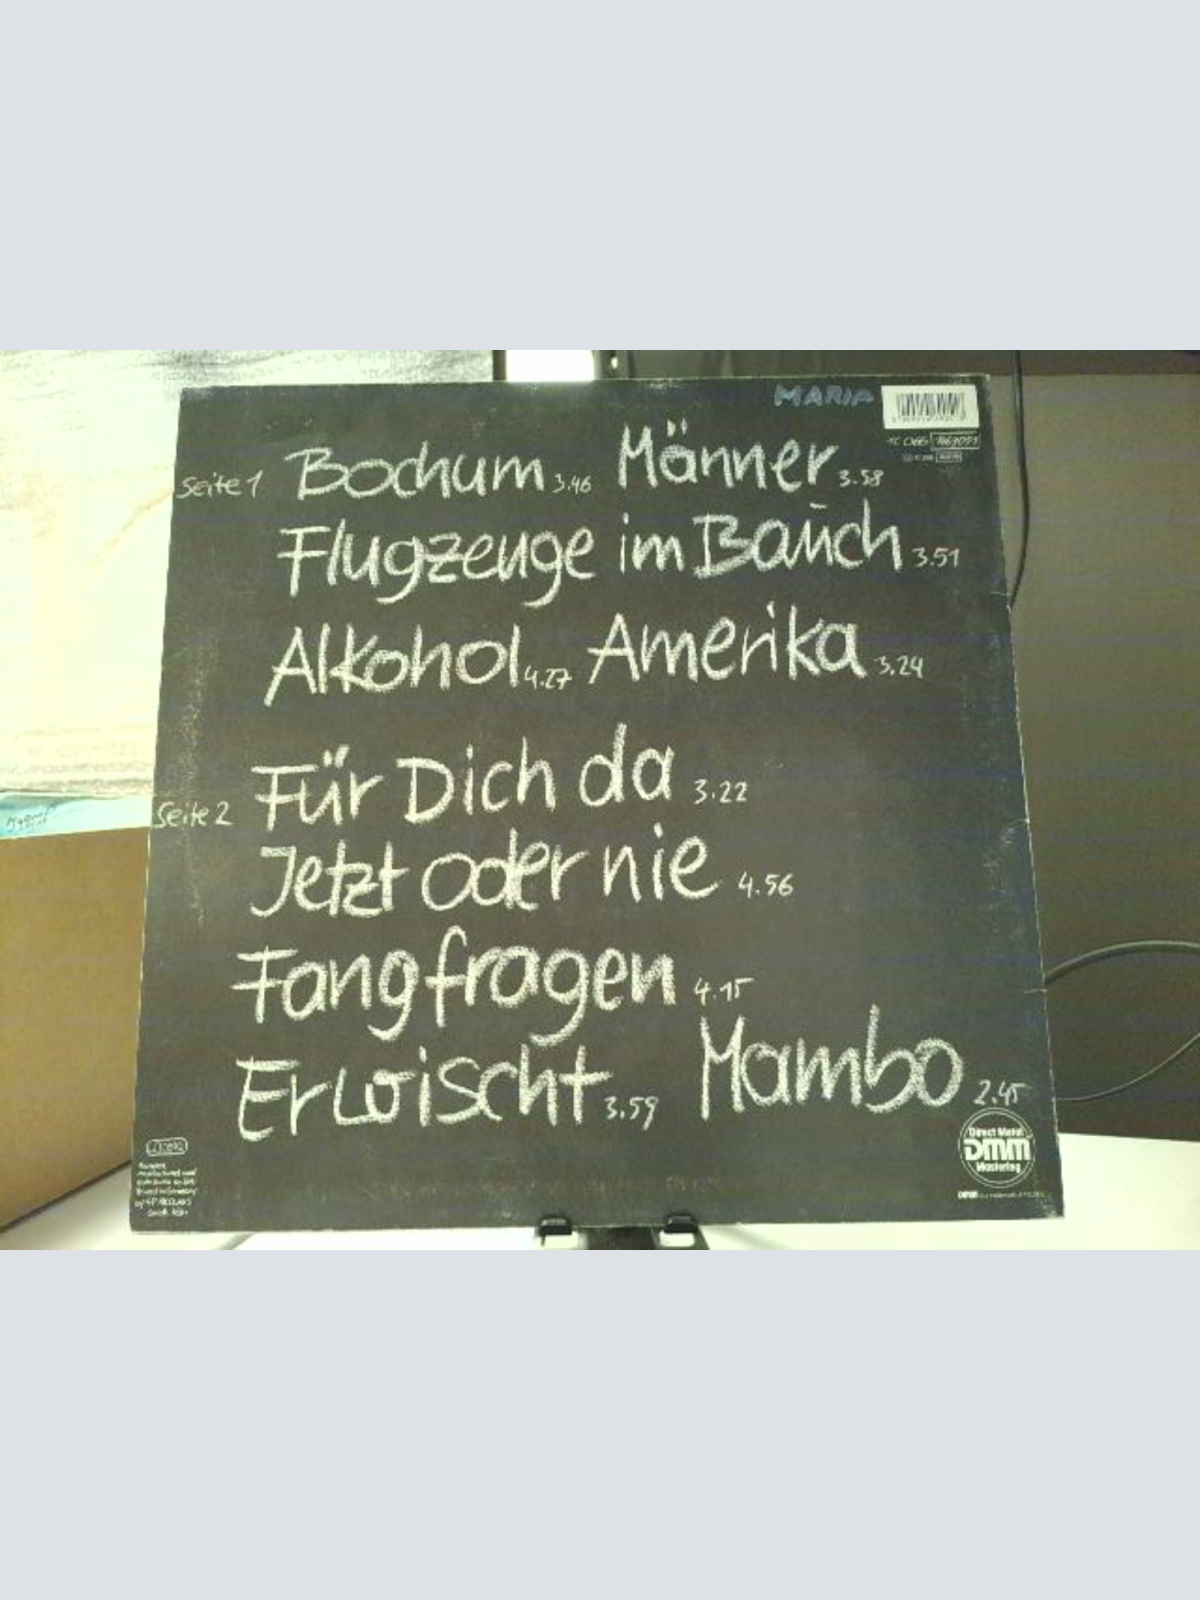 MARIA
1C 066 1463091
Seite 1 Bochum 3.46 Männer 3.58
Flugzeuge im Bauch 3.51
Alkohol 4.27 Amerika 3.24
Seite 2 Für Dich da 3.22
Jetzt oder nie 4.56
Fangfragen 4.15
Erwischt 3.59 Mambo 2.45
Direct Metal
DMM
Mastering